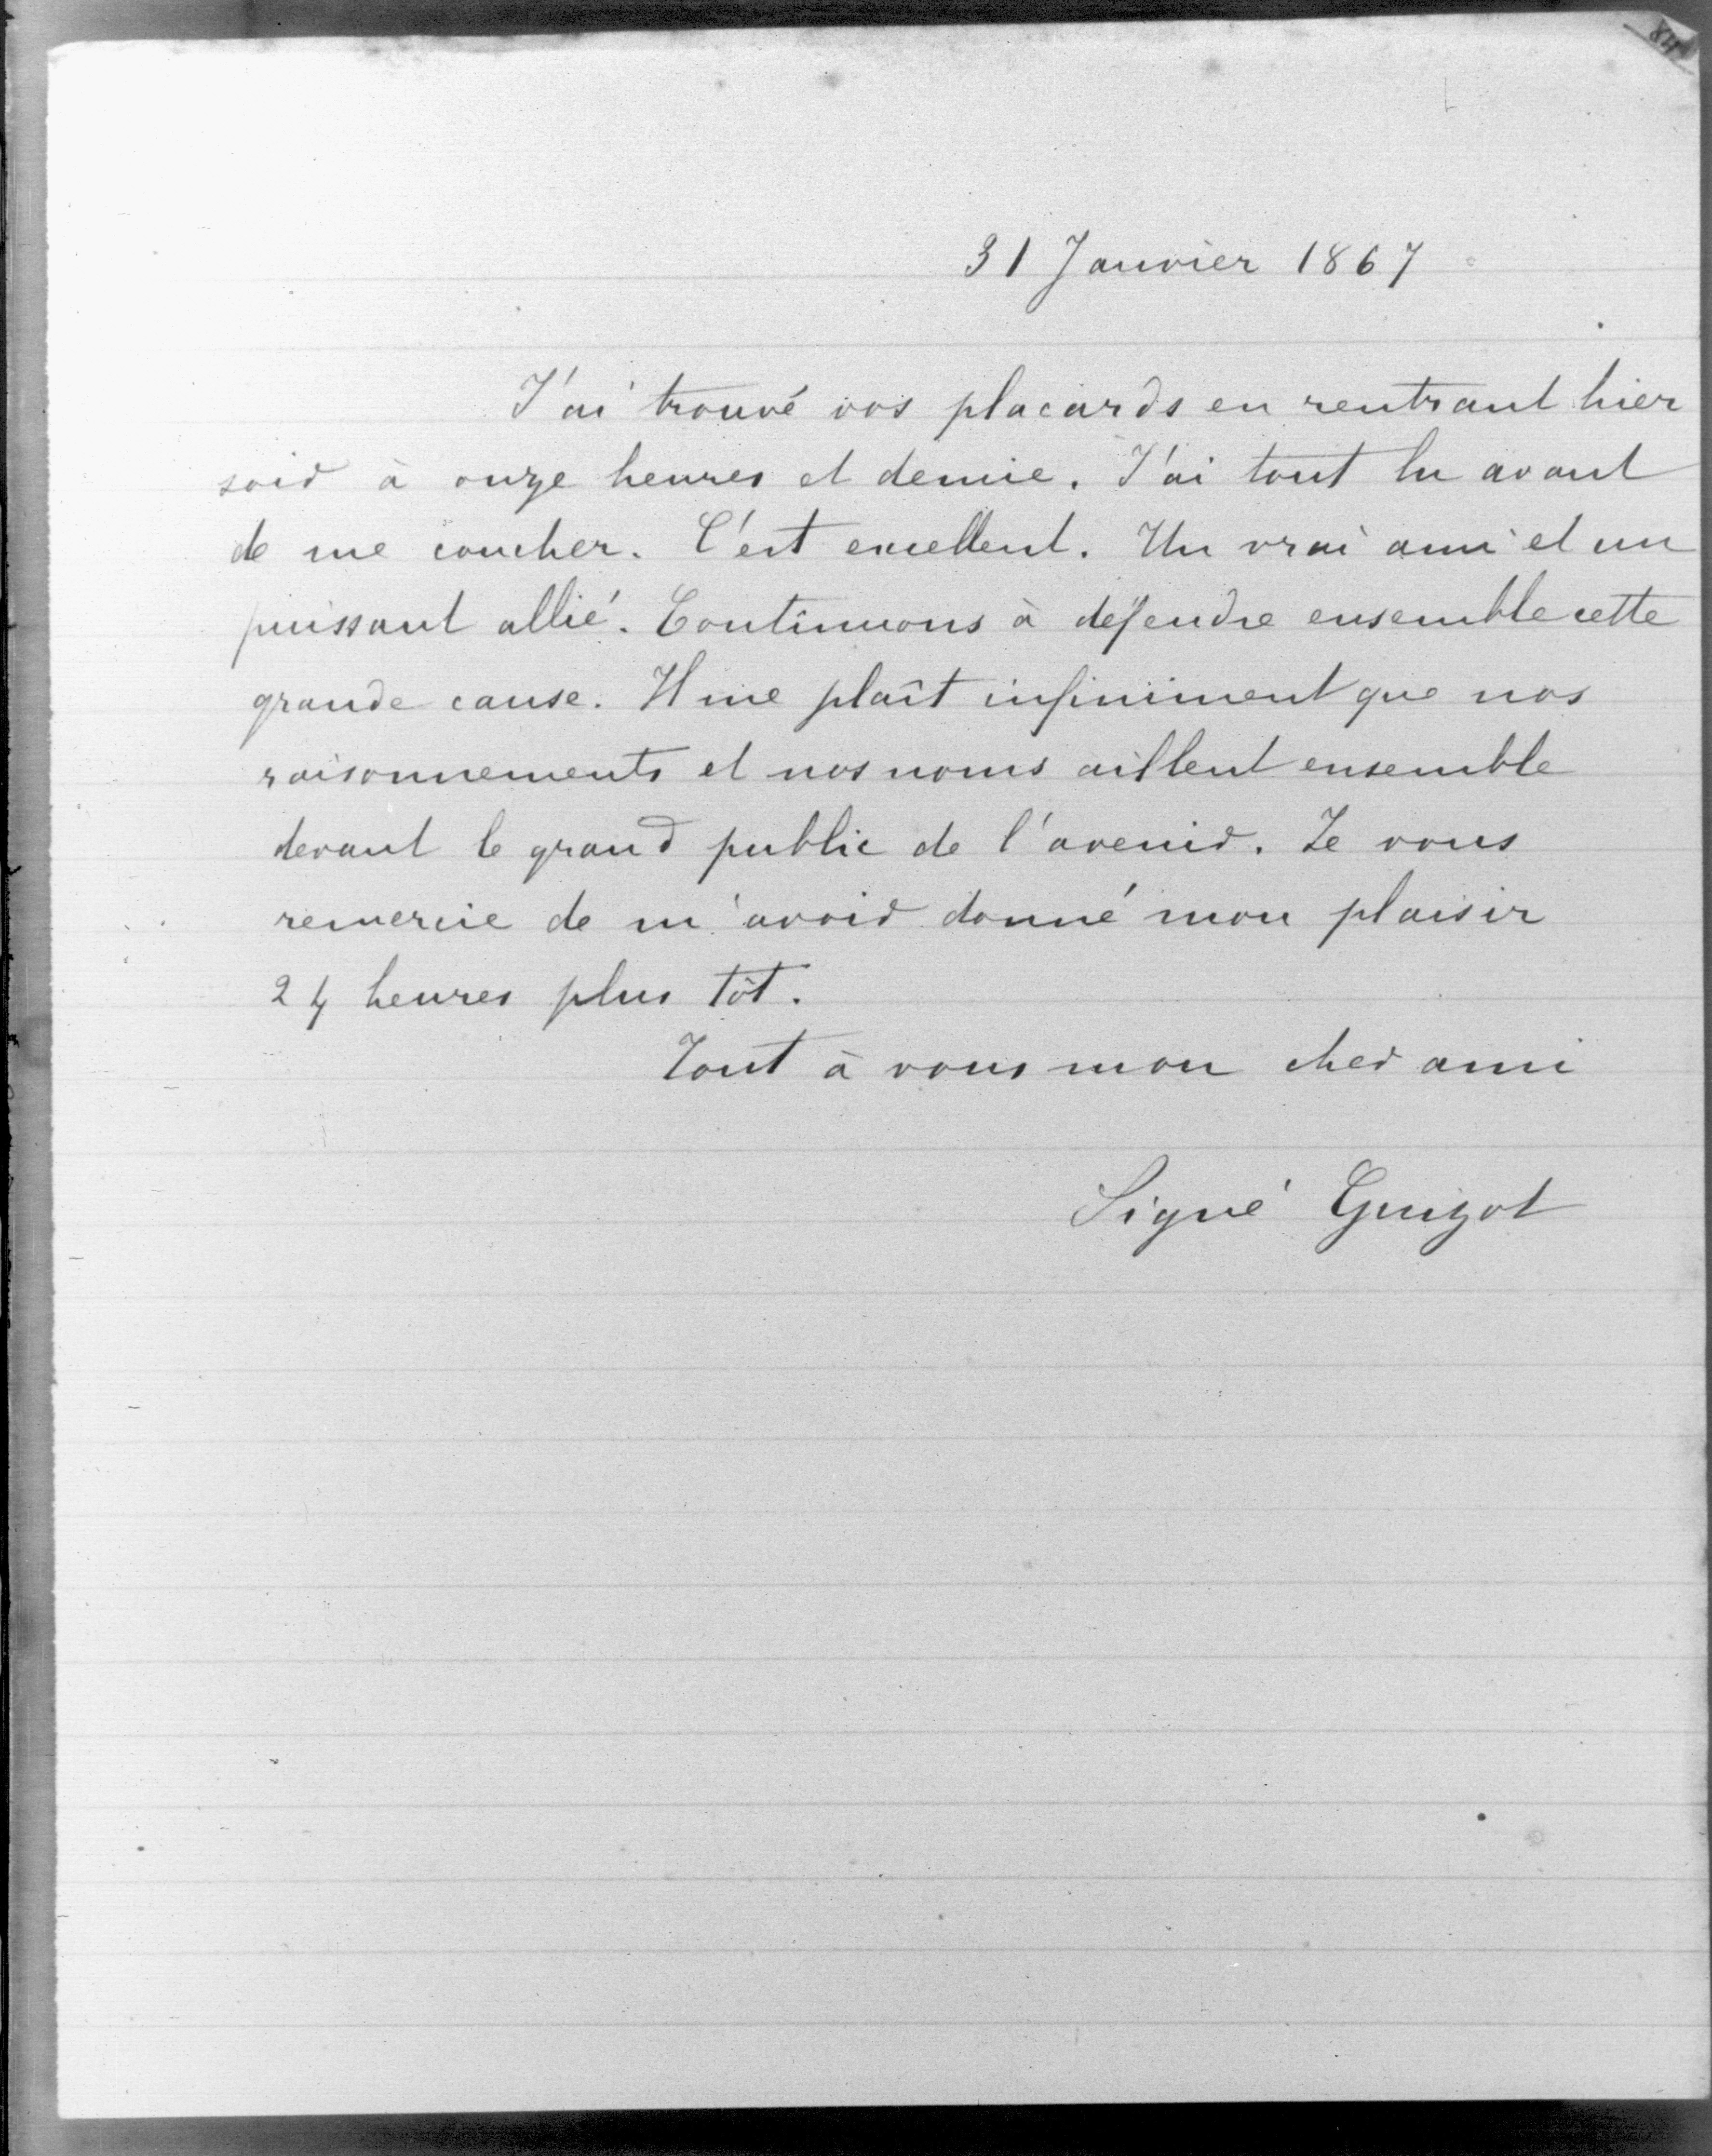 31 Janvier 1867
J'ai trouvé vos placards en rentrant hier
soir à onze heures et demie. J'ai tout lu avant
de me coucher. C'est excellent. Un vrai ami et un
puissant allié. Continuons à défendre ensemble cette
grande cause. Il me plaît infiniment que nos
raisonnements et nos noms aillent ensemble
devant le grand public de l'avenir. Je vous
remercie de m'avoir donné mon plaisir
24 heures plus tôt.
Tout à vous mon cher ami
Signé Guizot